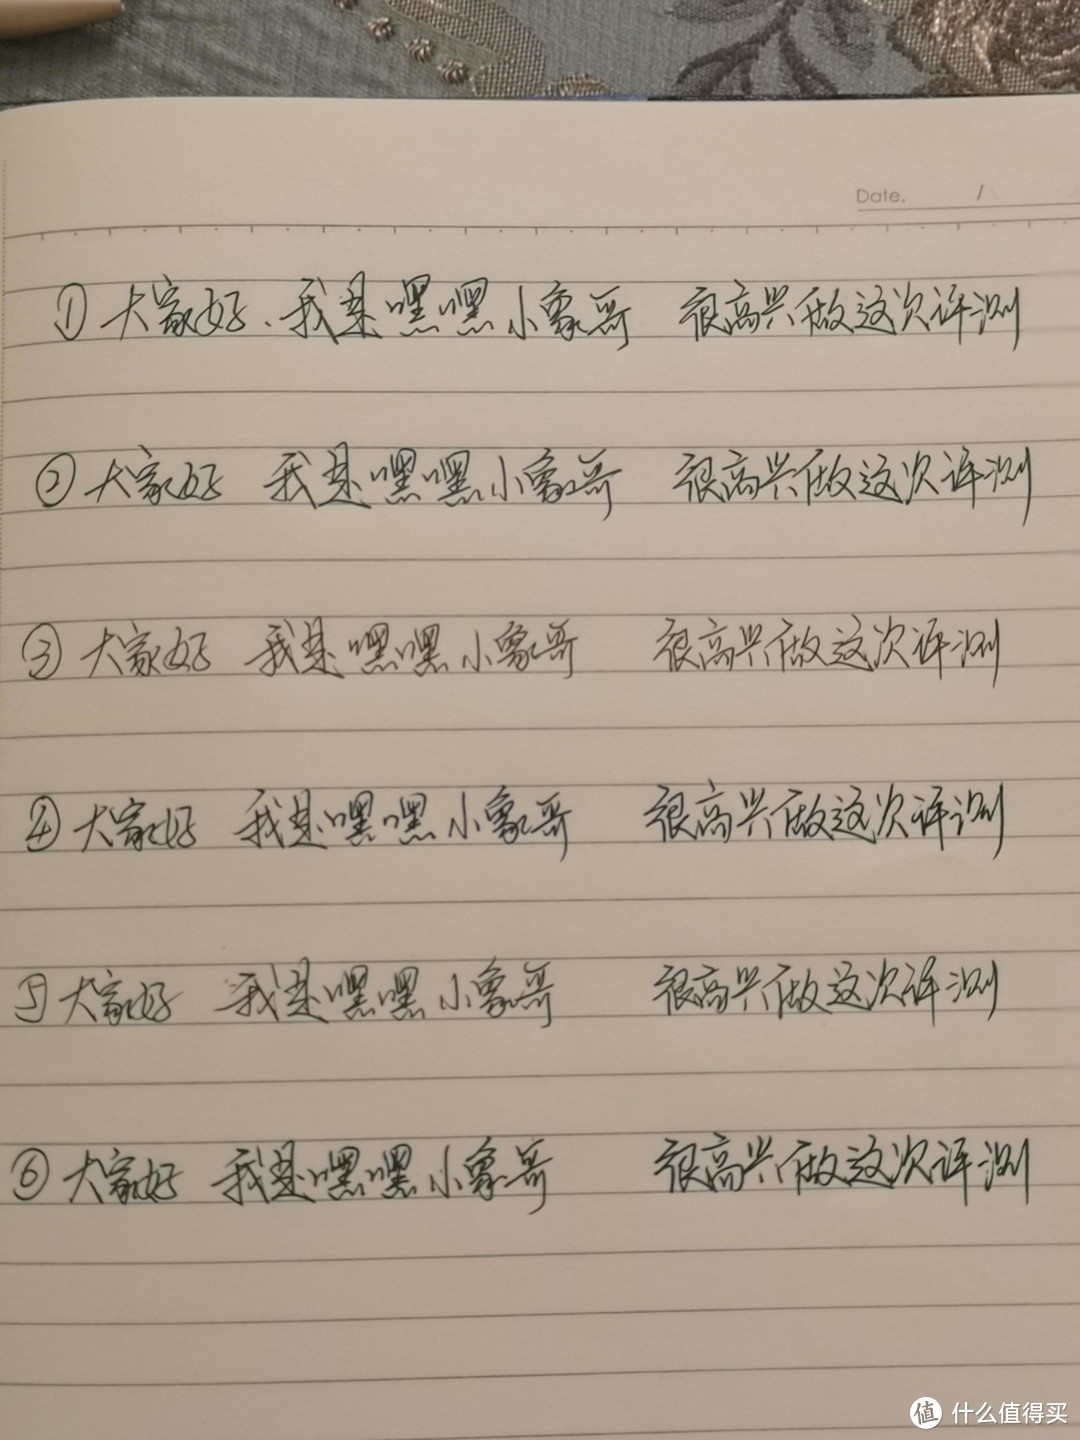 Date. /
①大家好.我是嘿嘿小象哥 很高兴做这次评测
②大家好 我是嘿嘿小象哥 很高兴做这次评测
③大家好 我是嘿嘿小象哥 很高兴做这次评测
④大家好 我是嘿嘿小象哥 很高兴做这次评测
⑤大家好 我是嘿嘿小象哥 很高兴做这次评测
⑥大家好 我是嘿嘿小象哥 很高兴做这次评测
值 什么值得买